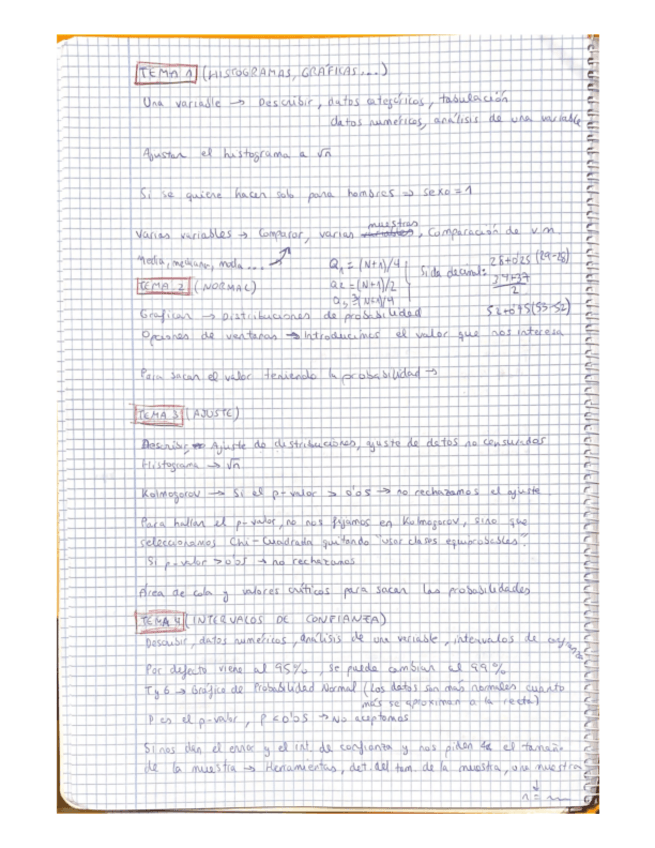 TEMA 1 (HISTOGRAMAS, GRÁFICAS...)
Una variable → Describir, datos categóricos, tabulación
datos numéricos, análisis de una variable
Ajustar el histograma a √n
Si se quiere hacer solo para hombres ⇒ sexo = 1
Varias variables → Comparar, varias muestras, Comparación de v.m
Media, mediana, moda...
Q1 = (N+1)/4
Q2 = (N+1)/2
Si da decimal:
28+0'25 (29-28)
2
TEMA 2 (NORMAL)
Graficar → Distribuciones de probabilidad
Opciones de ventanas → Introducimos el valor que nos interesa
Para sacar el valor teniendo la probabilidad →
TEMA 3 (AJUSTE)
Describir, Ajuste de distribuciones, ajuste de datos no censurados
Histograma → √n
Kolmogorov → Si el p-valor > 0'05 → no rechazamos el ajuste
Para hallar el p-valor, no nos fijamos en Kolmogorov, sino que
seleccionamos Chi-Cuadrada quitando "usar clases equiprobables".
Si p-valor > 0'05 → no rechazamos
Área de cola y valores críticos para sacar las probabilidades
TEMA 4 (INTERVALOS DE CONFIANZA)
Describir, datos numéricos, análisis de una variable, intervalos de
Por defecto viene al 95%, se puede cambiar al 99%
→ Gráfico de Probabilidad Normal (Los datos son más normales cuanto
más se aproximan a la recta)
P es el p-valor, P < 0'05 → No aceptamos
Si nos dan el error y el int. de confianza y nos piden el tamaño
de la muestra → Herramientas, det. del tam. de la muestra, una muestra
↓
n =